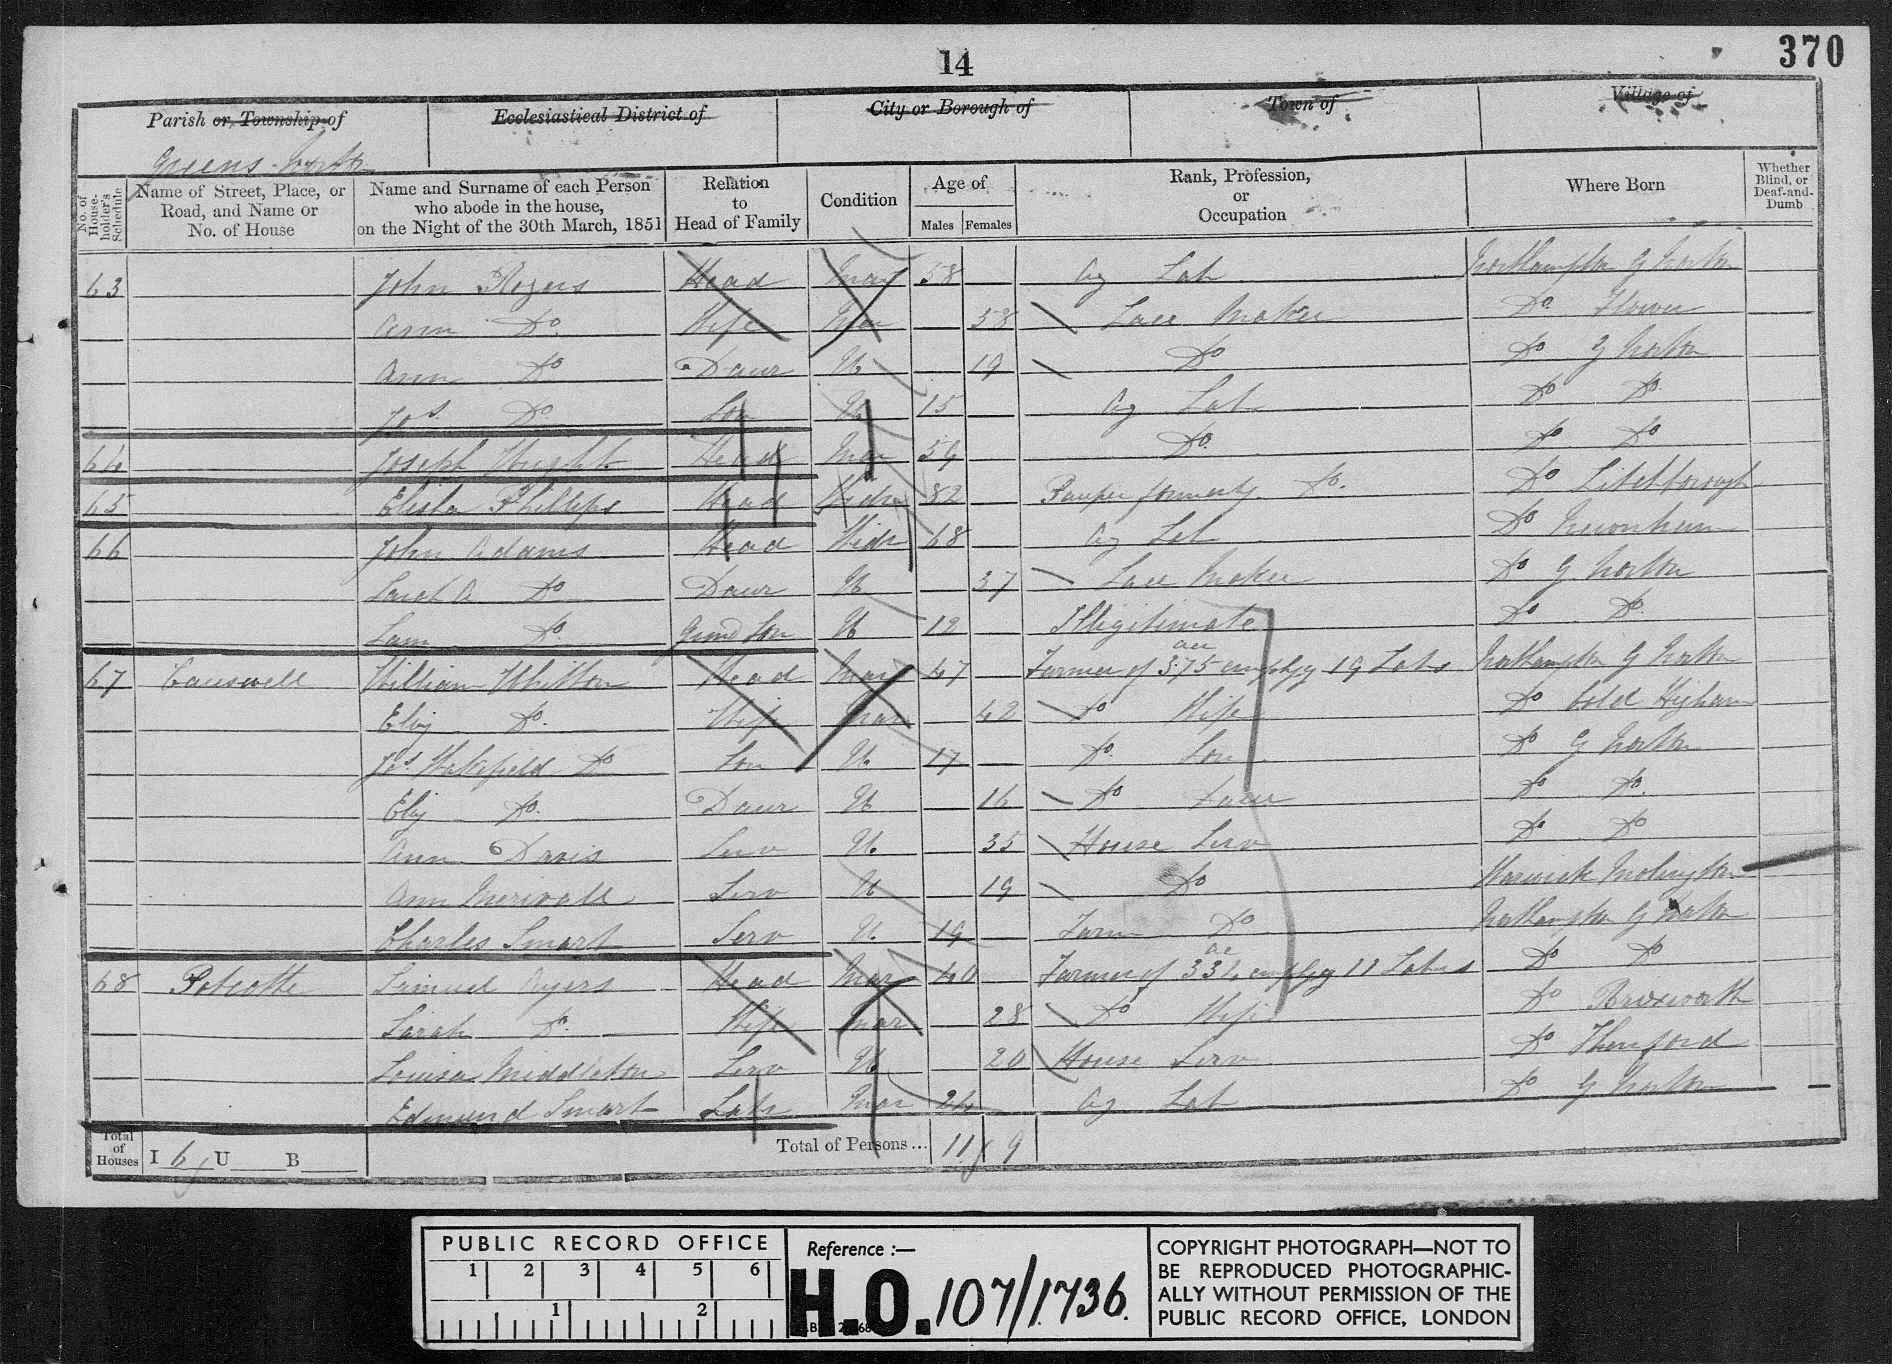 14
370
Parish or Township of
Ecclesiastical District of
City or Borough of
Town of
Village of
Greens Norton
No. of House-holder's Schedule
Name of Street, Place, or Road, and Name or No. of House
Name and Surname of each Person who abode in the house, on the Night of the 30th March, 1851
Relation to Head of Family
Condition
Age of
Males Females
Rank, Profession, or Occupation
Where Born
Whether Blind, or Deaf-and-Dumb
63 John Rogers Head Mar 58 Ag Lab Northampton G Norton
Ann Do Wife Mar 58 Lace Maker Do Flower
Ann Do Daur U 19 Do Do G Norton
Jos Do Son U 15 Ag Lab Do Do
64 Joseph Wright Head Mar 59 Do Do Do
65 Elisha Phillips Head Widr 82 Pauper formerly Do Do Litchborough
66 John Adams Head Widr 68 Ag Lab Do
Sarah A Do Daur U 37 Lace Maker Do G Norton
Sam Do Grand Son U 12 Illegitimate Do Do
67 Causwell William Whitton Head Mar 47 Farmer of 375 ac employg 19 Labs Northampton G Norton
Eliz Do Wife Mar 42 Do Wife Do Cold Higham
Jos Wakefield Do Son U 17 Do Son Do G Norton
Eliz Do Daur U 16 Do Daur Do Do
Ann Davis Serv U 35 House Serv Do Do
Ann Merivale Serv U 19 Do Warwick Molington
Charles Smart Serv U 19 Farm Do Northampton G Norton
68 Potcotte Samuel Ayers Head Mar 40 Farmer of 334 ac employg 11 Labs Do Do
Sarah Do Wife Mar 28 Do Wife Do Brixworth
Louisa Middleton Serv U 20 House Serv Do Thenford
Edmund Smart Labr Mar 24 Ag Lab Do G Norton
Total of Houses I 6 U B
Total of Persons... 11 9
PUBLIC RECORD OFFICE
1 2 3 4 5 6
1 2
Reference :—
H.O. 107/1736.
COPYRIGHT PHOTOGRAPH—NOT TO
BE REPRODUCED PHOTOGRAPHIC-
ALLY WITHOUT PERMISSION OF THE
PUBLIC RECORD OFFICE, LONDON